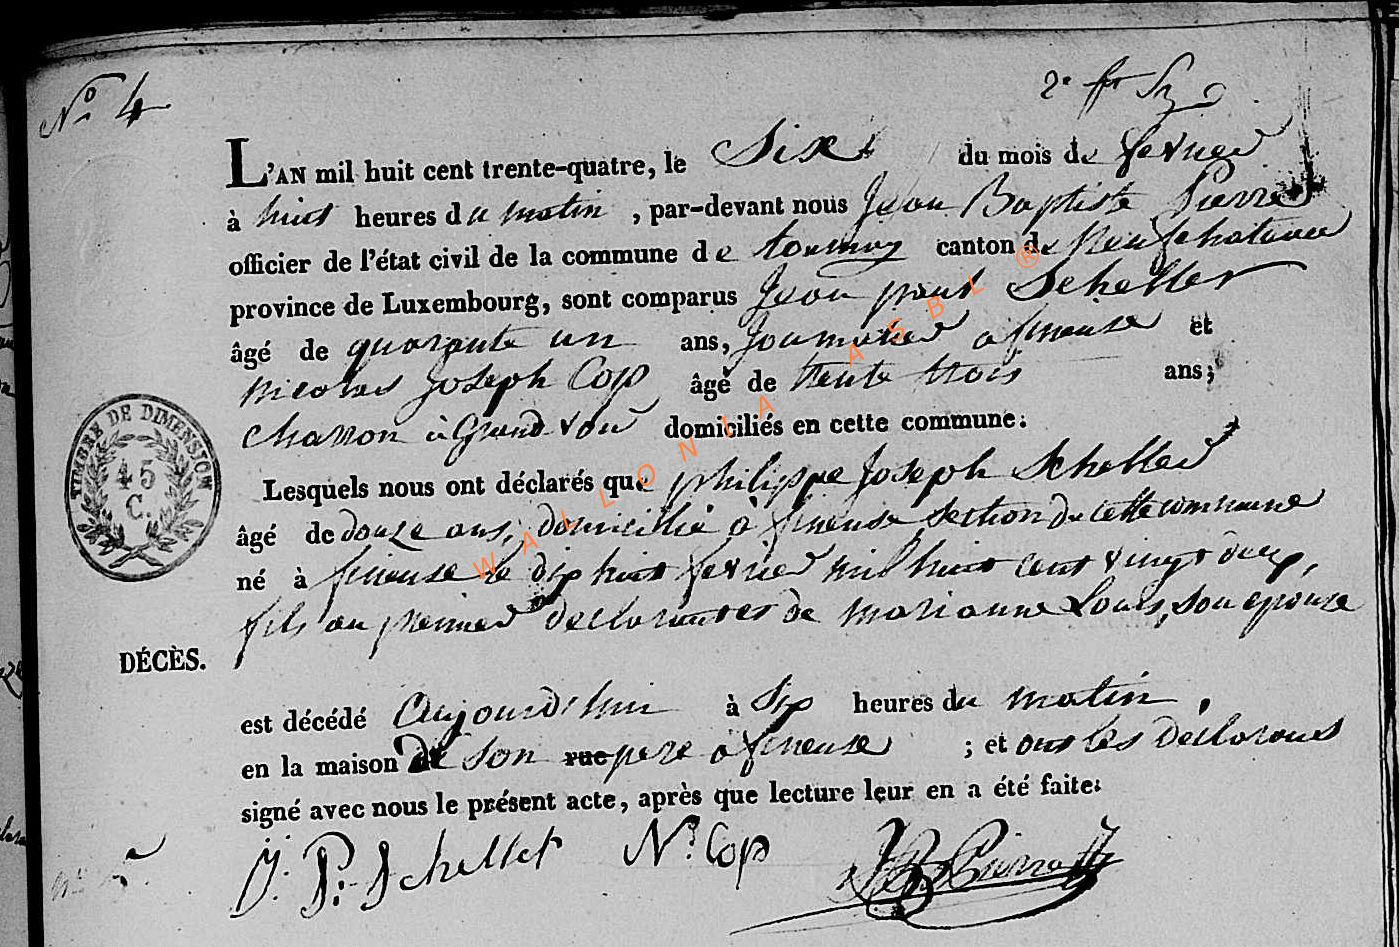 N° 4
L'AN mil huit cent trente-quatre, le Six du mois de fevrier
à huit heures du matin, par-devant nous Jean Baptiste Pierret
officier de l'état civil de la commune de tournay canton de Neufchateau
province de Luxembourg, sont comparus Jean paul Scheller
âgé de quarante un ans, Journalier a fineuse et
nicolas Joseph Cop âgé de trente trois ans;
charron à Grand voir domiciliés en cette commune:
Lesquels nous ont déclarés que philippe Joseph Scheller
âgé de douze ans, domicillié à fineuse section de cette commune
né à fineuse le dix huit fevrier mil huit cent vingt deux,
fils au premier declarant et de marianne Louis, son epouse
DÉCÈS.
est décédé aujourd'hui à six heures du matin,
en la maison de son rue pere a fineuse ; et ont les déclarans
signé avec nous le présent acte, après que lecture leur en a été faite.
J. P. Schellet N. Cop JB Pierret
TIMBRE DE DIMENSION
45
C.
WALLONIA ASBL ®